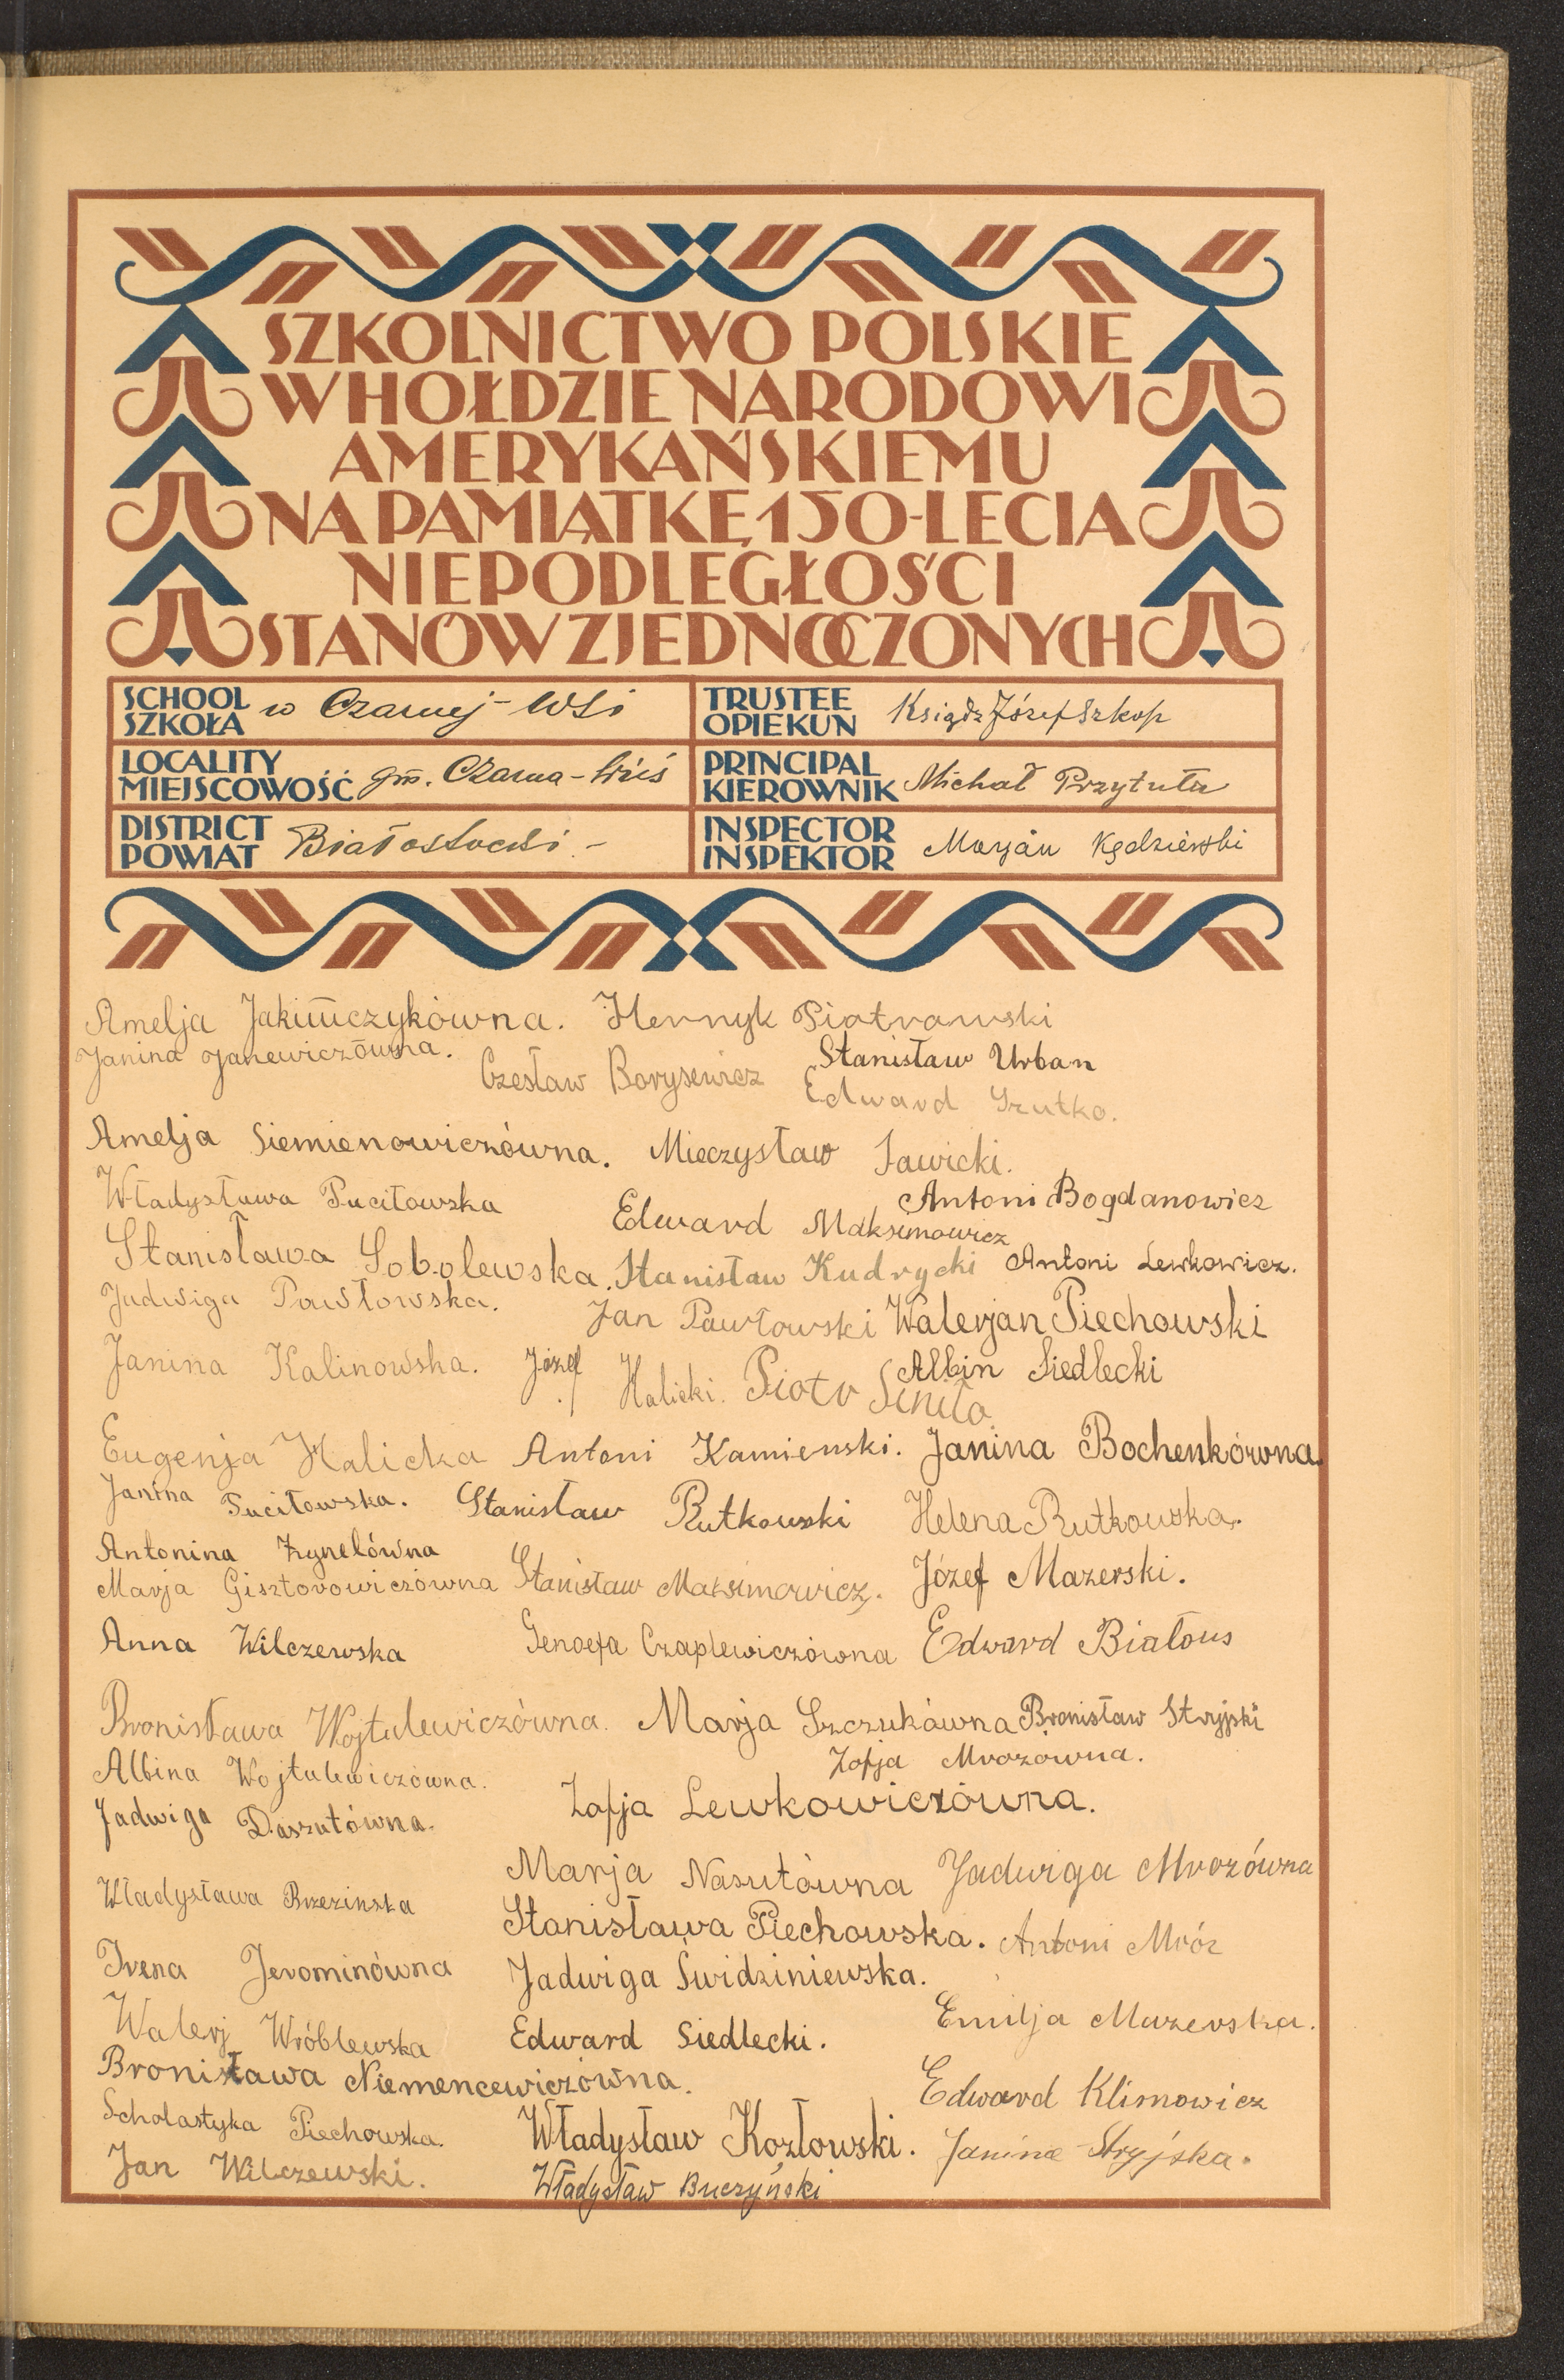 SZKOLNICTWO POLSKIE
W HOŁDZIE NARODOWI
AMERYKAŃSKIEMU
NA PAMIĄTKĘ 150-LECIA
NIEPODLEGŁOŚCI
STANÓW ZJEDNOCZONYCH
SCHOOL
SZKOŁA w Czarnej-Wsi
TRUSTEE
OPIEKUN Ksiądz Józef Szkop
LOCALITY
MIEJSCOWOŚĆ gm. Czarna-Wieś
PRINCIPAL
KIEROWNIK Michał Przytuła
DISTRICT
POWIAT Białostocki -
INSPECTOR
INSPEKTOR Marjan Kędzierski
Amelja Jakimczykówna. Henryk Piotrowski
Janina Janewiczówna. Stanisław Urban
Czesław Borysewicz Edward Szutko.
Amelja Siemienowiczówna. Mieczysław Sawicki.
Władysława Puciłowska Antoni Bogdanowicz
Edward Maksimowicz
Stanisława Sobolewska. Stanisław Kudrycki Antoni Lewkowicz.
Jadwiga Pawłowska. Jan Pawłowski Walerjan Piechowski
Janina Kalinowska. Józef Halicki. Piotr Albin Siedlecki
Eugenja Halicka Antoni Kamienski. Janina Bochenkówna.
Janina Puciłowska. Stanisław Rutkowski Helena Rutkowska.
Antonina
Marja Gisztorowiczówna Stanisław Maksimowicz. Józef Mazerski.
Anna Wilczewska Genoefa Czaplewiczówna Edward Białous
Bronisława Wojtulewiczówna. Marja Szczukówna Bronisław Stryjski
Albina Wojtulewiczówna. Zofja Mrozówna.
Jadwiga Daszutówna. Zofja Lewkowiczówna.
Marja Nasutówna Jadwiga Mrozówna
Władysława Brzezinska Stanisława Piechowska. Antoni Mróz
Irena Jerominówna Jadwiga Świdziniewska.
Walerj Wróblewska Edward Siedlecki. Emilja Mazerska.
Bronisława Niemencewiczówna. Edward Klimowicz
Scholastyka Piechowska. Władysław Kozłowski. Janina Stryjska.
Jan Wilczewski. Władysław Buczyński